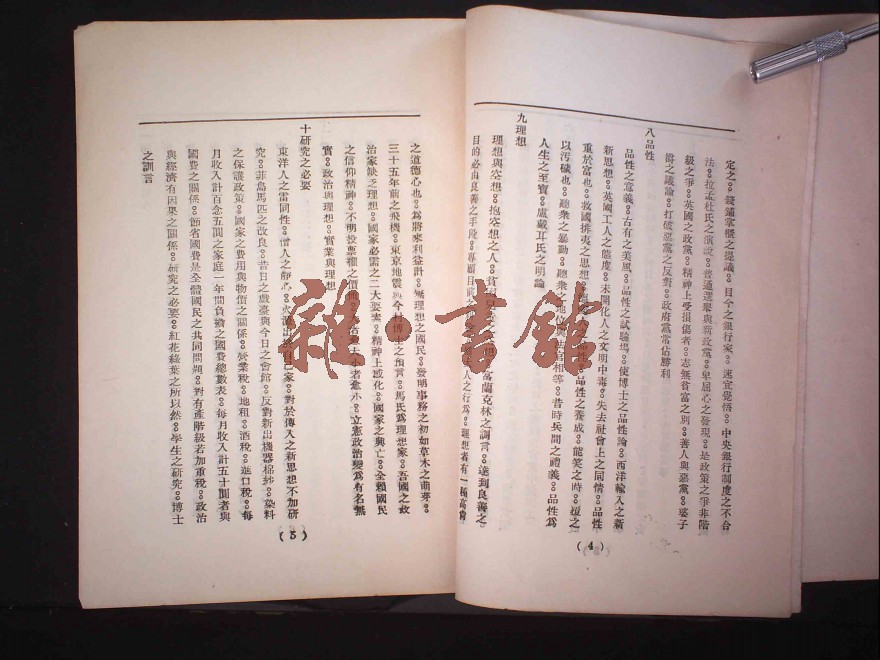 定之。錢鋪掌櫃之提議。目今之銀行家。速宜覺悟。中央銀行制度之不合
法。拉孟杜氏之演說。普通選舉與新政黨。卑屈心之發現。是政策之爭非階
級之爭。英國之政黨。精神上受損傷者。志無貧富之別。善人與惡黨。婆子
爵之議論。打破惡黨之反對。政府黨常佔勝利
八品性
品性之意義。古有之美風。品性之試驗場。使博士之品性論。西洋輸入之新
新思想。英國工人之態度。未開化人之文明中毒。失去社會上之同情。品性
重於富也。救國排夷之思想。品性之養成。龍笑之時。
以污穢也。聽衆之暴動。聽衆之官相等。昔時兵間之禮義。品性爲
人生之至寶。盧嚴耳氏之明論
九理想
理想與空想。抱空想之人。富蘭克林之訓言。達到良善之
目的必由良善之手段。專顧目前人之行爲。理想者有一種高尙
之道德心也。爲將來利益計。無理想之國民。發明事務之初如草木之萌芽。
三十五年前之飛機。東京地震與今村博士之預言。馬氏爲理想家。吾國之政
治家缺乏理想。國家必需之二大要素。精神上感化。國家之興亡。全賴國民
之信仰精神。不明投票權之價值。立憲政治變爲有名無
實。政治與理想。實業與理想
十研究之必要
東洋人之雷同性。僧人之靜心。火酒出自己家。對於傳入之新思想不加研
究。菲島馬匹之改良。昔日之戲臺與今日之會館。反對新出機器棉紗。染料
之保護政策。國家之費用與物價之關係。營業稅。地租。酒稅。進口稅。每
月收入計百念五圓之家庭一年間負擔之國費總數表。每月收入計五十圓者與
國費之關係。節省國費是全體國民之共同問題。對有產階級若加重稅。政治
與經濟有因果之關係。研究之必要。紅花綠葉之所以然。學生之研究。博士
之訓言
(4)
(5)
雜·書館